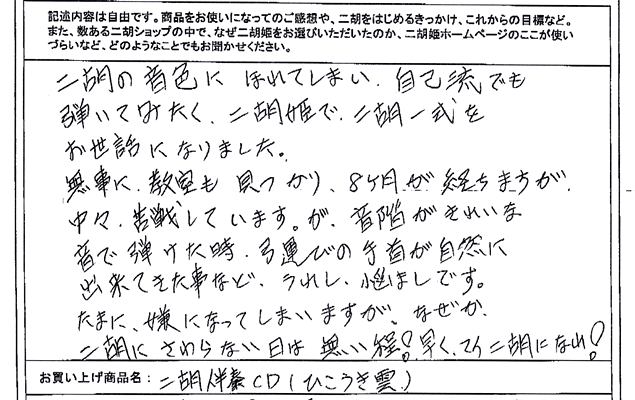 記述内容は自由です。商品をお使いになってのご感想や、二胡をはじめるきっかけ、これからの目標など。
また、数ある二胡ショップの中で、なぜ二胡姫をお選びいただいたのか、二胡姫ホームページのここが使い
づらいなど、どのようなことでもお聞かせください。
二胡の音色に ほれてしまい、自己流でも
弾いてみたく、二胡姫で、二胡一式を
お世話になりました。
無事に、教室も 見つかり、8ヶ月が 経ちますが、
中々、苦戦しています。が、音階がきれいな
音で 弾けた時、弓運びの手首が自然に
出来てきた事など、うれし、悩ましです。
たまに、嫌になってしまいますが、なぜか、
二胡に さわらない日は 無い程!早く、二胡になれ!
お買い上げ商品名：二胡伴奏CD(ひこうき雲)